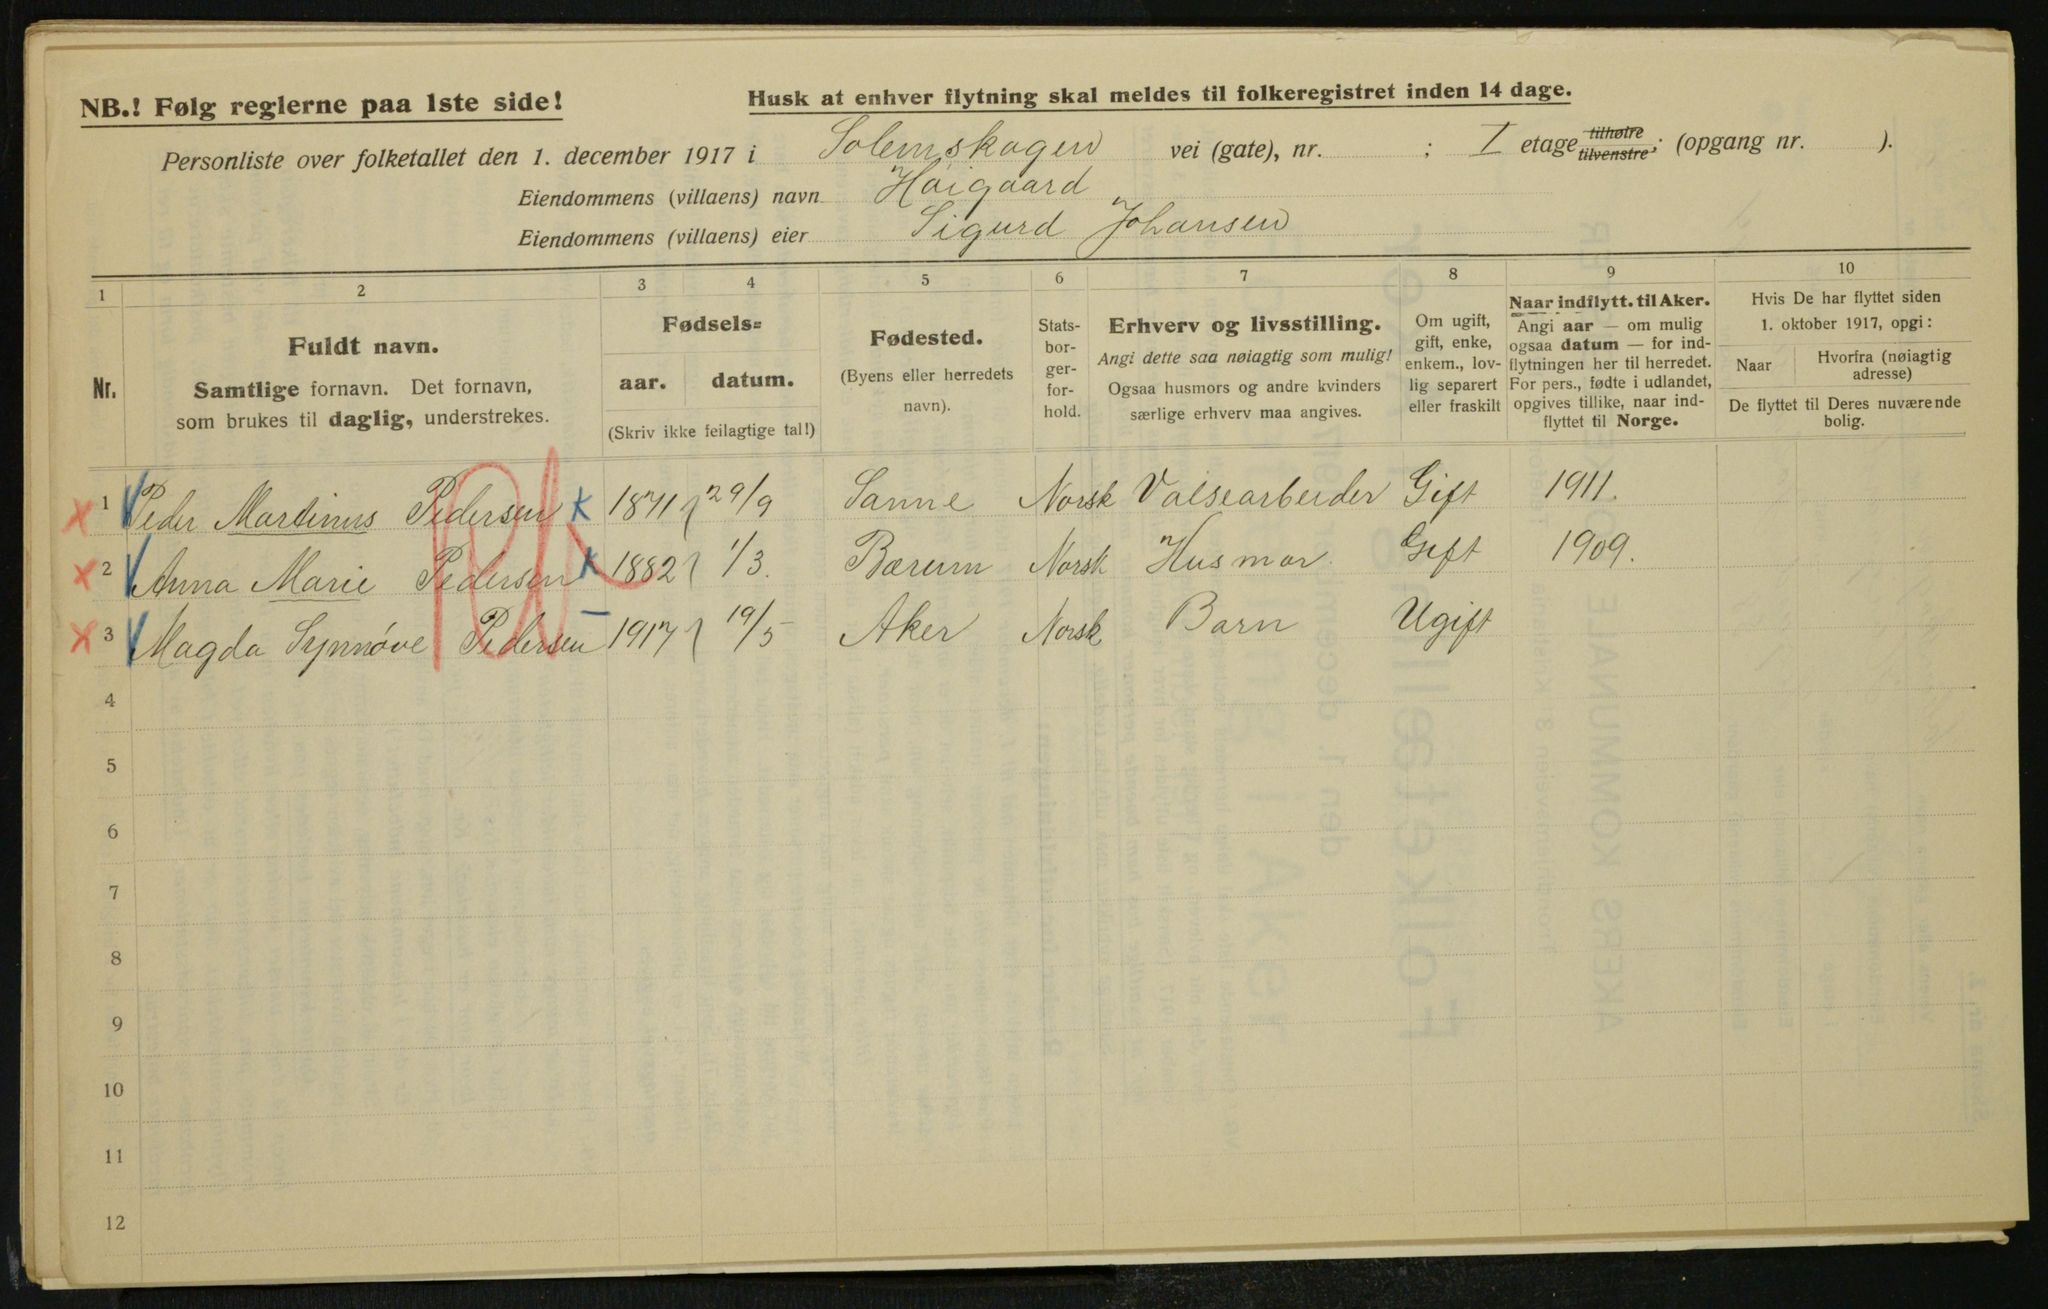 NB.! Følg reglerne paa 1ste side!
Husk at enhver flytning skal meldes til folkeregistret inden 14 dage.
Personliste over folketallet den 1. december 1917 i Solemskogen vei (gate), nr. ; I etage tilhøire tilvenstre; (opgang nr. ).
Eiendommens (villaens) navn Høigaard
Eiendommens (villaens) eier Sigurd Johansen
1 2 3 4 5 6 7 8 9 10
Nr.
Fuldt navn.
Samtlige fornavn. Det fornavn,
som brukes til daglig, understrekes.
Fødsels=
aar. datum.
(Skriv ikke feilagtige tal!)
Fødested.
(Byens eller herredets
navn).
Stats-
bor-
ger-
for-
hold.
Erhverv og livsstilling.
Angi dette saa nøiagtig som mulig!
Ogsaa husmors og andre kvinders
særlige erhverv maa angives.
Om ugift,
gift, enke,
enkem., lov-
lig separert
eller fraskilt
Naar indflytt. til Aker.
Angi aar — om mulig
ogsaa datum — for ind-
flytningen her til herredet.
For pers., fødte i udlandet,
opgives tillike, naar ind-
flyttet til Norge.
Hvis De har flyttet siden
1. oktober 1917, opgi:
Naar
Hvorfra (nøiagtig
adresse)
De flyttet til Deres nuværende
bolig.
x 1 Peder Martinus Pedersen K 1871 29/9 Sanne Norsk Valsearbeider Gift 1911.
x 2 Anna Marie Pedersen K 1882 1/3. Bærum Norsk Husmor Gift 1909.
x 3 Magda Synnøve Pedersen — 1917 19/5 Aker Norsk Barn Ugift
4
5
6
7
8
9
10
11
12